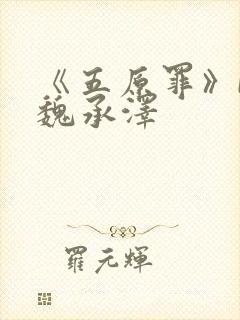 《五原罪》
魏承澤
羅元輝